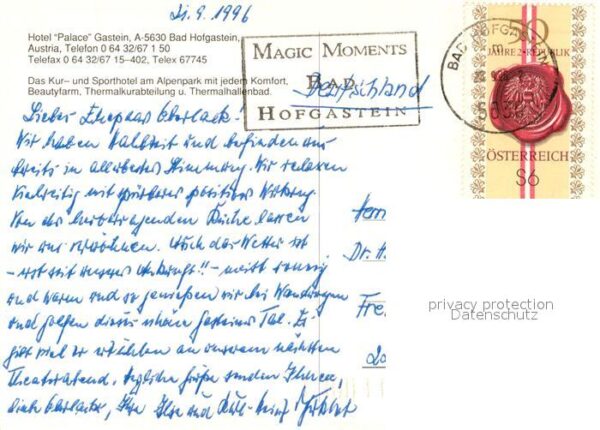 21.9.1996
Hotel "Palace" Gastein, A-5630 Bad Hofgastein,
Austria, Telefon 0 64 32/67 1 50
Telefax 0 64 32/67 15–402, Telex 67745
Das Kur- und Sporthotel am Alpenpark mit jedem Komfort,
Beautyfarm, Thermalkurabteilung u. Thermalhallenbad.
MAGIC MOMENTS
BAD
HOFGASTEIN
Deutschland
BAD HOFGASTEIN
50
JAHRE 2. REPUBLIK
ÖSTERREICH
S6
Liebes Ehepaar
Wir haben Halbzeit und befinden uns
bereits in allerbester Stimmung. Wir relaxen
vielseitig mit spürbarer positiver Wirkung.
Von der hervorragenden Küche lassen
wir uns verwöhnen. Auch das Wetter ist
- erst seit unserer Ankunft!! - meist sonnig
und warm und so genießen wir bei Wanderungen
und golfen dieses schöne Gasteiner Tal. Es
gibt viel zu erzählen an unserem nächsten
Theaterabend. Herzliche Grüße senden Ihnen,
Ihre Ilse und
Dr. H
Fre
privacy protection
Datenschutz